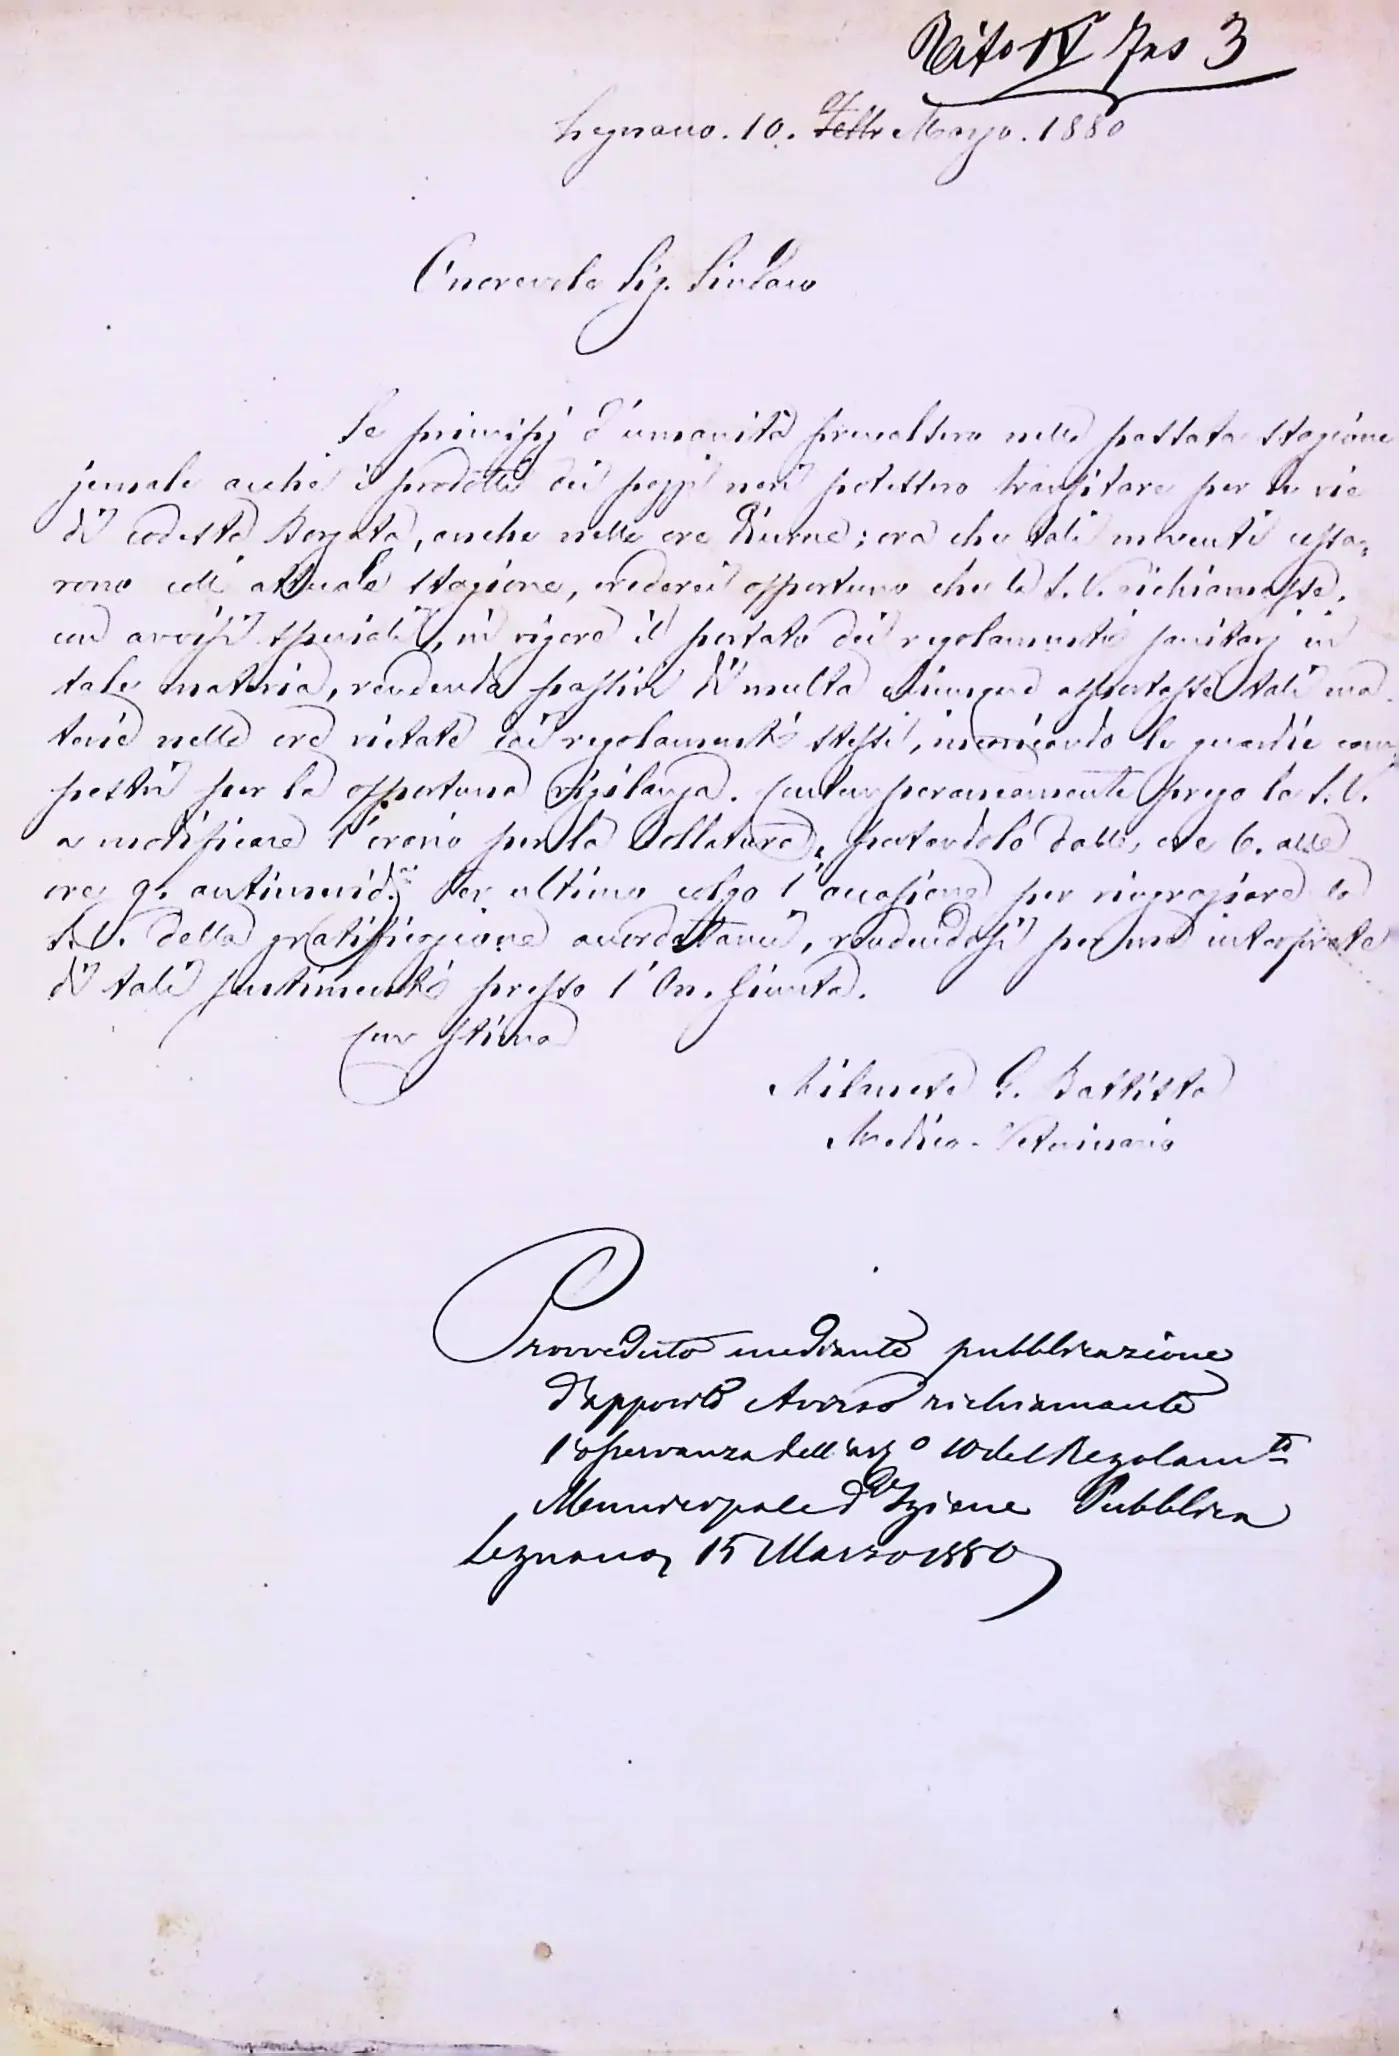 Tito IV Fas 3
Legnano. 10. Febb Marzo. 1880
Onorevole Sig. Sindaco
Se principj d'umanità prevalsero nella passata stagione
jemale acchè i prodotti dei pozzi neri potessero transitare per le vie
di codesta Borgata, anche nelle ore diurne; ora che tali moventi cessa=
rono coll'attuale stagione, crederei opportuno che la S. V. richiamasse,
con avvisi speciali, in vigore il portato dei regolamenti sanitarj in
tale materia, rendendo passivi di multa chiunque asportasse tali ma-
terie nelle ore vietate dai regolamenti stessi, incaricando le guardie cam-
pestri per la opportuna vigilanza. Contemporaneamente prego la S. V.
a modificare l'orario per la , portandolo dalle ore 6. alle
ore 9. antimerid.ne Per ultimo colgo l'occasione per ringraziare la
S. V. della gratificazione accordatami, rendendosi per me interprete
di tali sentimenti presso l'On. Giunta.
Con stima
Milanese G. Battista
Medico-Veterinario
Provveduto mediante pubblicazione
d'apposito Avviso richiamante
l'osservanza dell'art.o 10 del Regolam.to
Municipale d'Igiene Pubblica
Legnano, 15 Marzo 1880